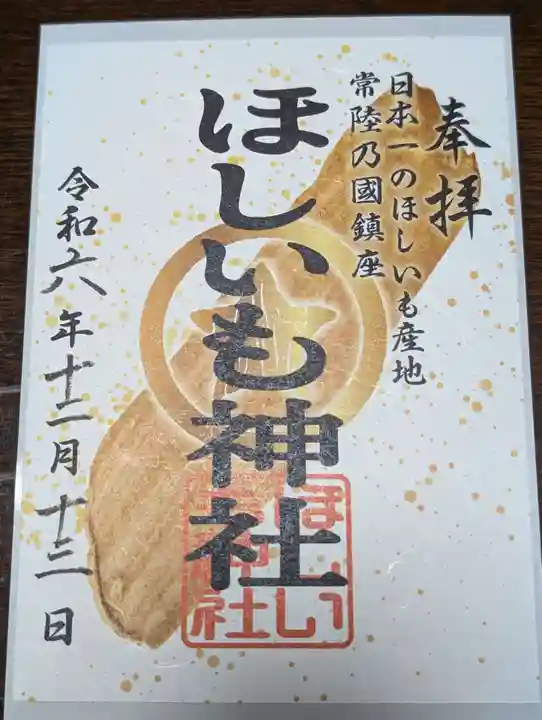 奉拝
日本一のほしいも産地
常陸乃國鎮座
ほしいも神社
ほしい
も神
社
令和六年十二月十三日